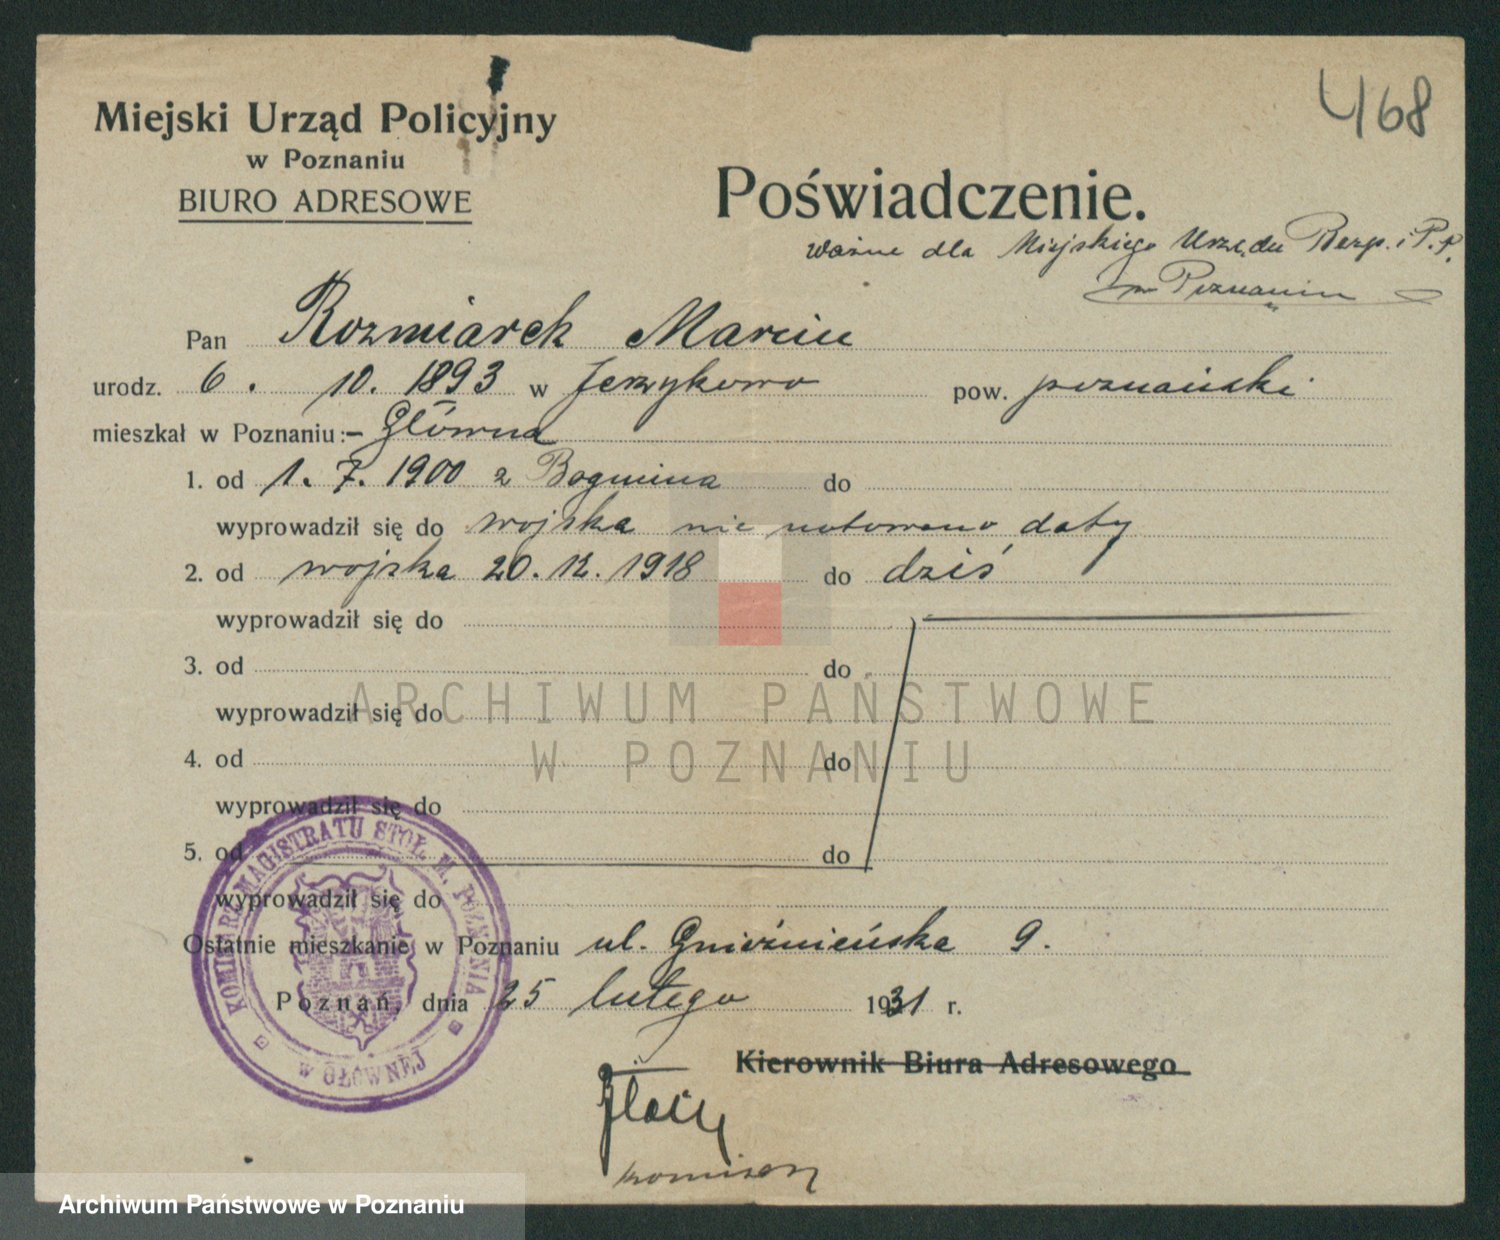 468
Miejski Urząd Policyjny
w Poznaniu
BIURO ADRESOWE
Poświadczenie.
ważne dla Miejskiego Urzędu Bezp. i P.P.
w Poznaniu
Pan Rozmiarek Marcin
urodz. 6. 10. 1893 w Jerzykowo pow. poznański
mieszkał w Poznaniu:- Główna
1. od 1. 7. 1900 z Bogucina do
wyprowadził się do wojska nie notowano daty
2. od wojska 20. 12. 1918 do dziś
wyprowadził się do
3. od do
wyprowadził się do
4. od do
wyprowadził się do
5. od do
wyprowadził się do
Ostatnie mieszkanie w Poznaniu ul. Gnieźnieńska 9.
Poznań, dnia 25 lutego 1931 r.
Kierownik Biura Adresowego
komisarz
KOMISARZ MAGISTRATU STOŁ. M. POZNANIA
w GŁÓWNEJ
ARCHIWUM PAŃSTWOWE
W POZNANIU
Archiwum Państwowe w Poznaniu